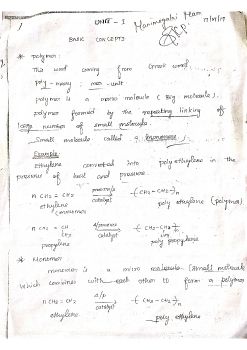 UNIT - I
BASIC CONCEPTS
* Polymer:
The word coming from Greek word.
poly - many : mer - unit
polymer is a macro molecule (Big molecule).
polymer formed by the repeating linking of
large number of small molecule.
Small molecule called a monomer.
Example
Ethylene converted into polyethylene in the
presence of heat and pressure.
n CH2 = CH2 → catalyst -( CH2 - CH2 )-n
ethylene poly ethylene (polymer)
(monomer)
n CH2 = CH catalyst -( CH2 - CH2 )-n
CH3
propylene poly propylene
* Monomer
monomer is a micro molecule (small molecule
which combines with each other to form a polymer
n CH2 = CH2 → a/p catalyst -( CH2 - CH2 )-n
ethylene poly ethylene